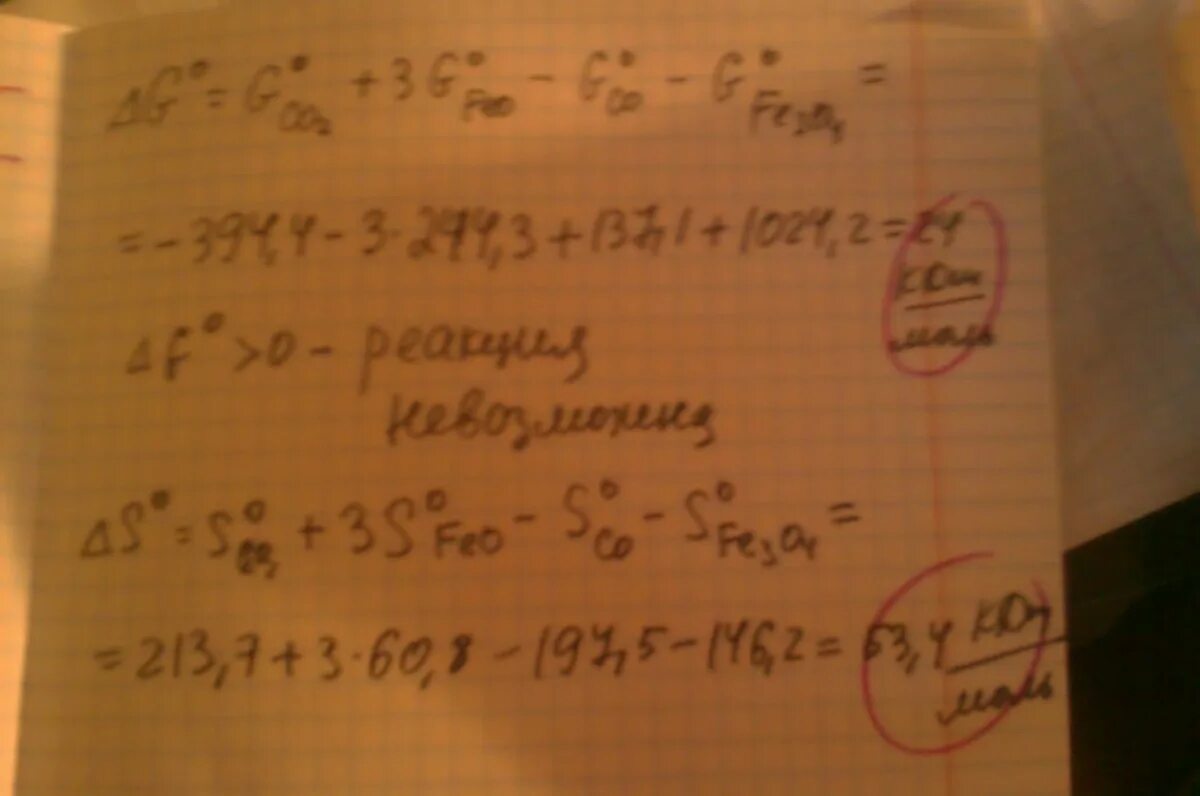 ΔG° = G°CO₂ + 3G°FeO − G°CO − G°Fe₃O₄ =
= −394,4 − 3·244,3 + 137,1 + 1024,2 = 24 кДж/моль
ΔG° > 0 – реакция
невозможна
ΔS° = S°CO₂ + 3S°FeO − S°CO − S°Fe₃O₄ =
= 213,7 + 3·60,8 − 197,5 − 146,2 = 53,4 кДж/моль